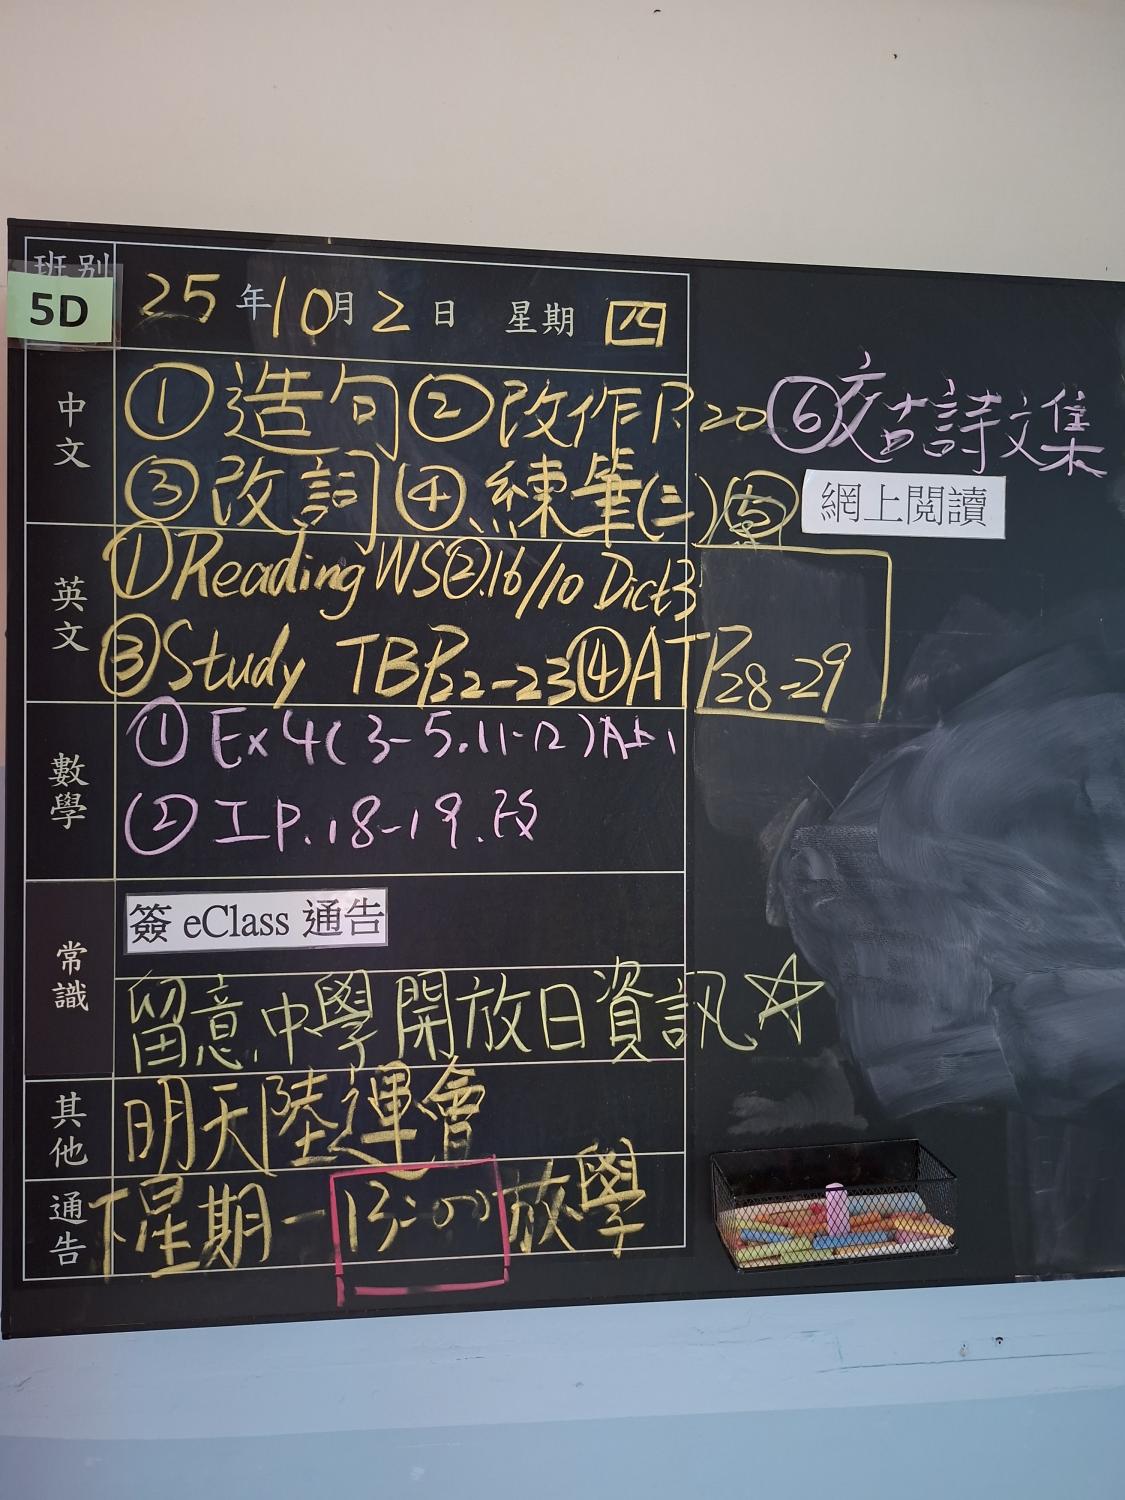 班別
5D
25年10月2日 星期四
中文
①造句②改作P.20⑥交古詩文集
③改詞④練筆(三)⑤網上閱讀
英文
①Reading WS②16/10 Dict3
③Study TBP.22-23④AT P.28-29
數學
①Ex4(3-5.11-12)
②工P.18-19.改
常識
簽 eClass 通告
留意中學開放日資訊☆
其他
明天陸運會
通告
下星期一13:00放學